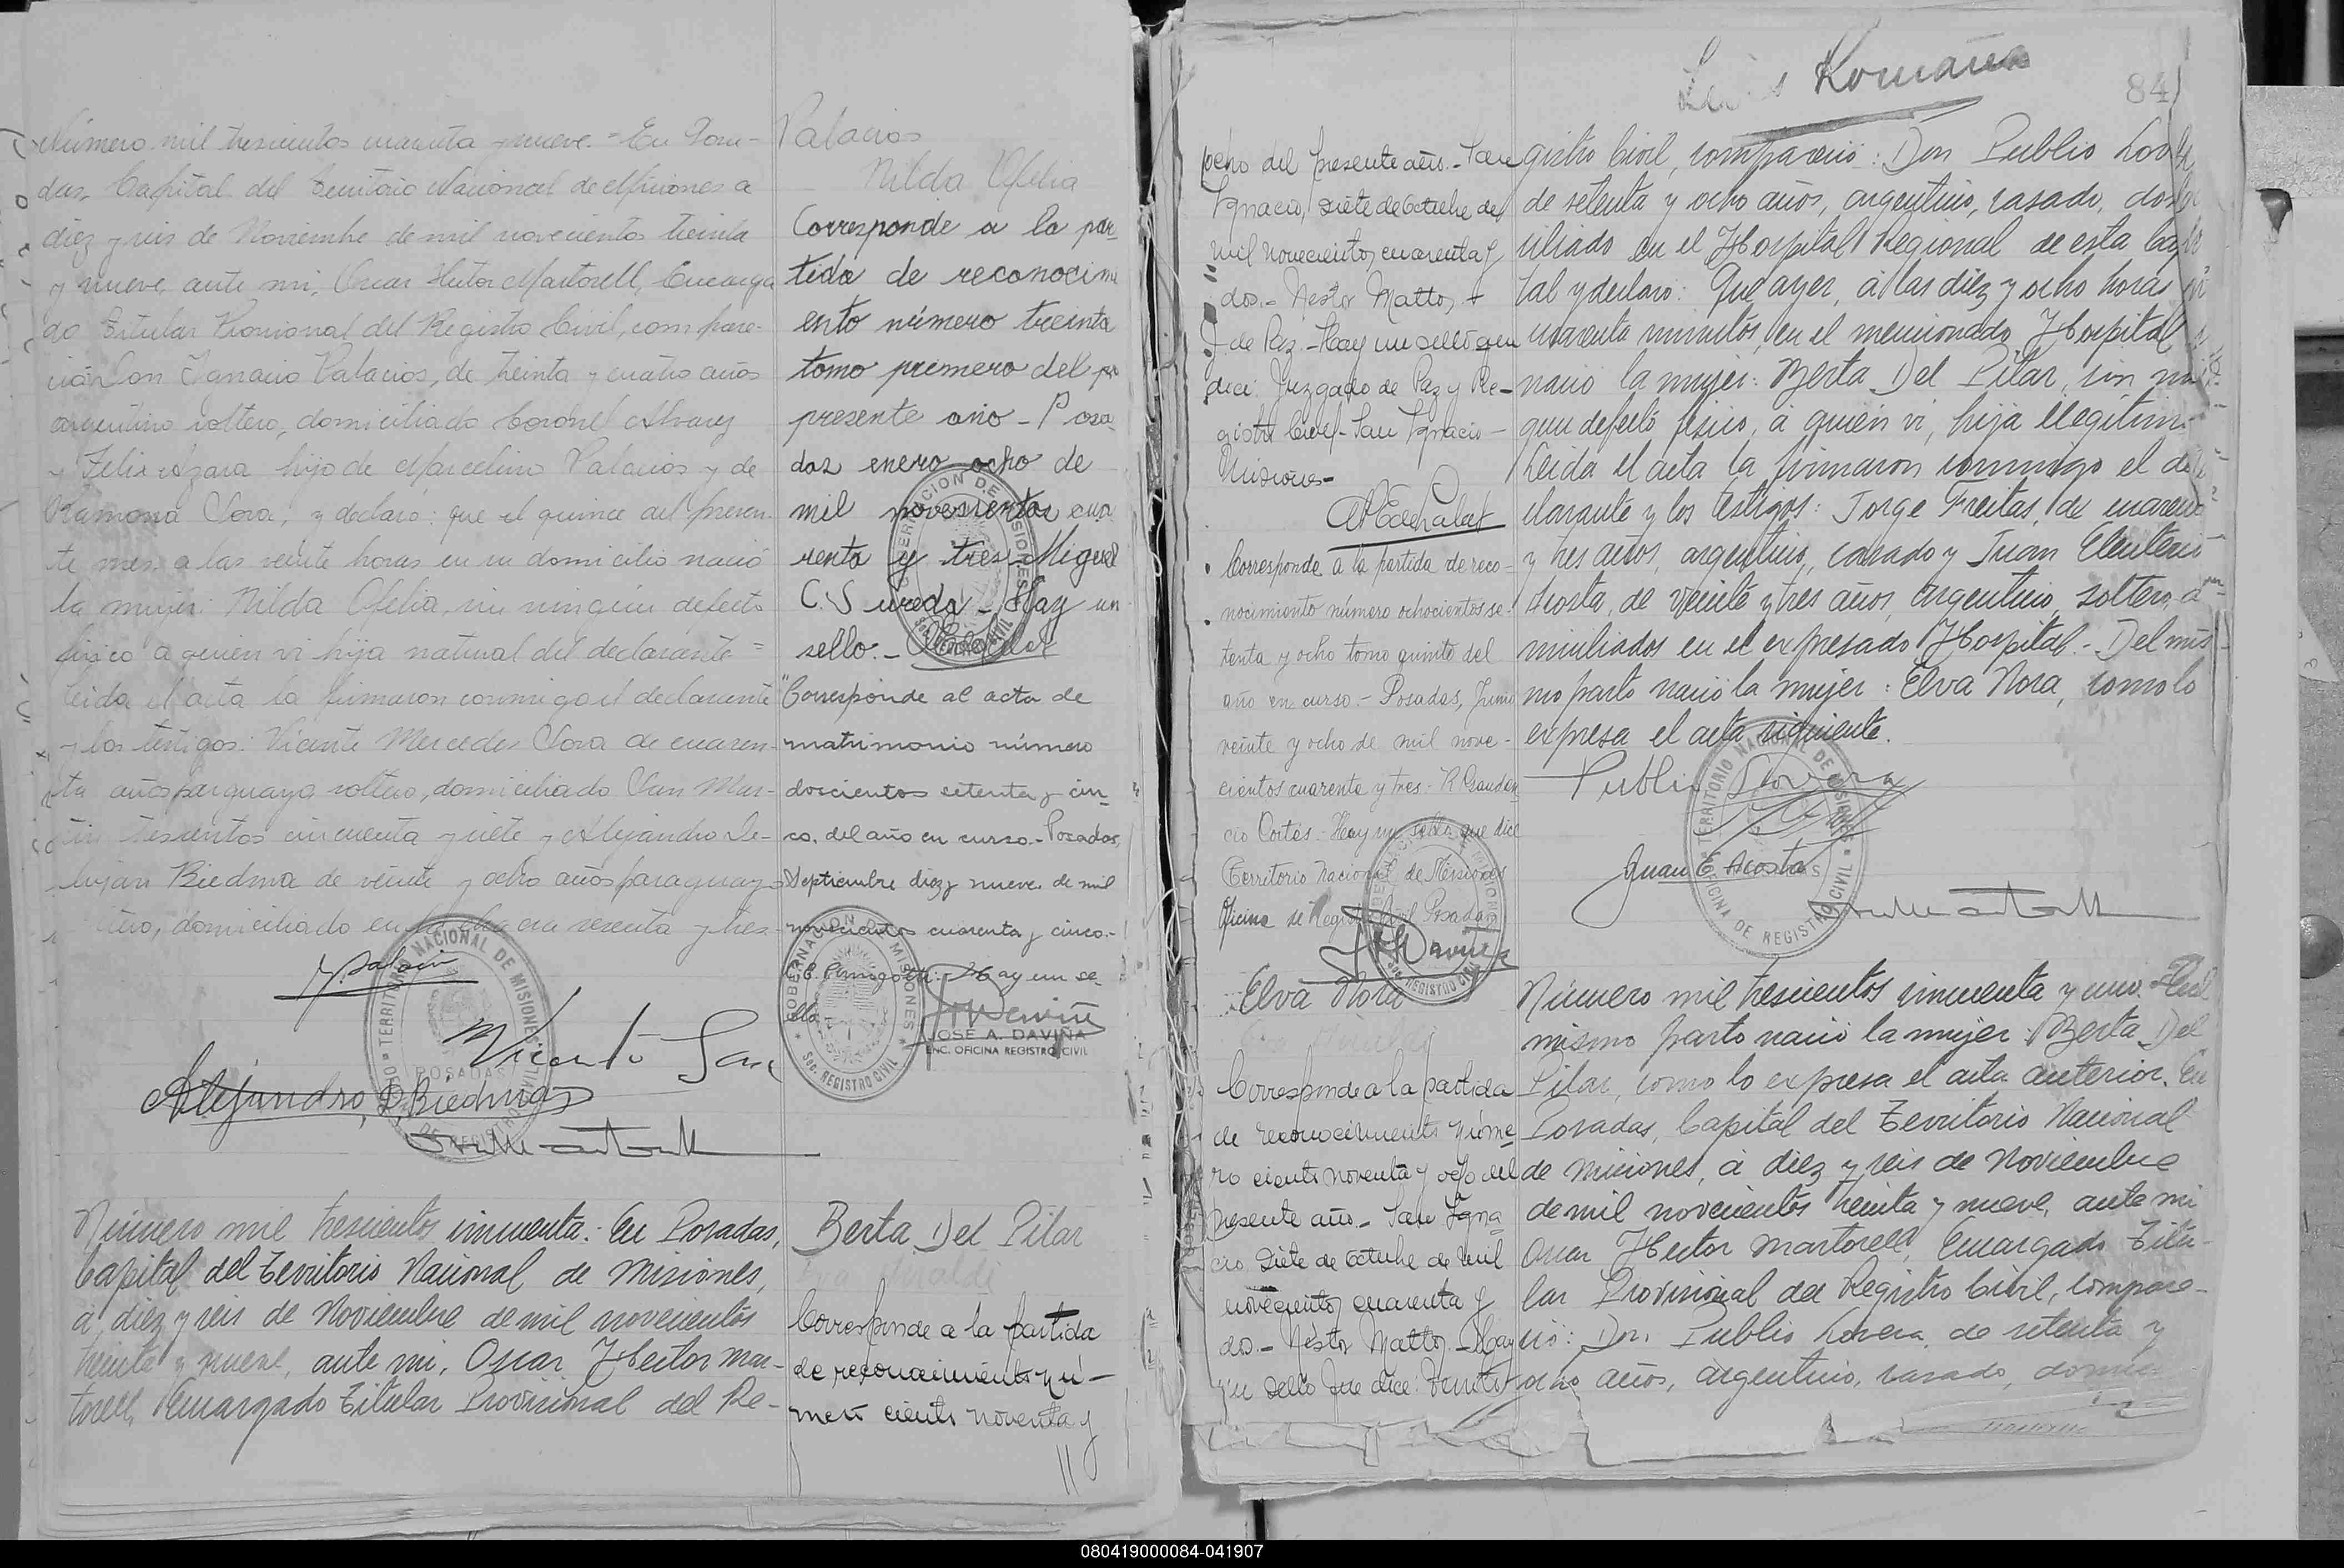 Número mil trescientos cuarenta y nueve. = En Posa-
das, Capital del Territorio Nacional de Misiones a
diez y seis de Noviembre de mil novecientos treinta
y nueve, ante mi, Oscar Hector Martorell, Encarga
do Titular Provisional del Registro Civil, compare-
ció Don Ignacio Palacios, de treinta y cuatro años
argentino soltero, domiciliado Coronel Alvarez
y Felix Azara hijo de Marcelino Palacios y de
Ramona Sosa, y declaró: que el quince del presen-
te mes a las veinte horas en su domicilio nació
la mujer Nilda Ofelia, sin ningún defecto
físico a quien vi hija natural del declarante =
Leida el acta la firmaron conmigo el declarante
y los testigos: Vicente Mercedes Sosa de cuaren-
ta años paraguayo soltero, domiciliado San Mar-
tin trescientos cincuenta y siete y Alejandro De-
Biedma de veinte y ocho años paraguayo
domiciliado en la chacra sesenta y tres
Vicente Sosa
Alejandro D. Biedma
Palacios
Nilda Ofelia
Corresponde a la par-
tida de reconocimi
ento número treinta
tomo primero del
presente año - Posa
das enero ocho de
mil novecientos cua
renta y tres - Miguel
C. S ureda - Hay un
sello. -
"Corresponde al acta de
matrimonio número
doscientos setenta y cin-
co. del año en curso. - Posadas,
Septiembre diez y nueve de mil
novecientos cuarenta y cinco. -
Hay un se-
llo
JOSE A. DAVIÑA
ENC. OFICINA REGISTRO CIVIL
Número mil trescientos cincuenta: En Posadas,
Capital del Territorio Nacional de Misiones,
á diez y seis de Noviembre de mil novecientos
treinta y nueve, ante mi, Oscar Hector Mar-
torell, Encargado Titular Provisional del Re-
Berta Del Pilar
Corresponde a la partida
de reconocimiento nú-
mero ciento noventa y
Romana
84
ocho del presente año. - San
Ignacio, siete de Octubre de
mil novecientos cuarenta y
dos. - Nestor Matto, +
J. de Paz. - Hay un sello que
dice: Juzgado de Paz y Re-
gistro Civil - San Ignacio -
Misiones -
Corresponde a la partida de reco-
nocimiento número ochocientos se-
tenta y ocho tomo quinto del
año en curso. - Posadas, Junio
veinte y ocho de mil nove-
cientos cuarenta y tres - R. Gauden
cio Cortés - Hay un sello que dice
Territorio Nacional de Misiones
Oficina de Registro Civil Posadas
gistro Civil, compareció: Don Publio Lovera
de setenta y ocho años, argentino, casado, domi
ciliado en el Hospital Regional de esta Capi
tal y declaró: Que ayer, á las diez y ocho horas
cuarenta minutos, en el mencionado Hospital
nació la mujer: Berta Del Pilar, sin nin
gun defecto fisico, á quien vi, hija ilegitima
Leida el acta la firmaron conmigo el de
clarante y los testigos: Jorge Freitas, de cuarenta
y tres años, argentino, casado y Juan Eleuterio
Acosta, de veinte y tres años, argentino, soltero, do
miciliados en el expresado Hospital. - Del mis
mo parto nació la mujer: Elva Nora, como lo
expresa el acta siguiente.
Publio Lovera
Juan E. Acosta
Elva Nora
Corresponde a la partida
de reconocimiento núme
ro ciento noventa y ocho del
presente año - San Igna
cio siete de Octubre de mil
novecientos cuarenta y
dos. - Néstor Matto. - Hay
un sello que dice:
Número mil trescientos cincuenta y uno. Del
mismo parto nació la mujer: Berta Del
Pilar, como lo expresa el acta anterior. En
Posadas, Capital del Territorio Nacional
de Misiones, á diez y seis de Noviembre
de mil novecientos treinta y nueve, ante mi
Oscar Hector Martorell, Encargado Titu-
lar Provisional del Registro Civil, compare-
ció: Don Publio Lovera de setenta y
ocho años, argentino, casado, domi
080419000084-041907